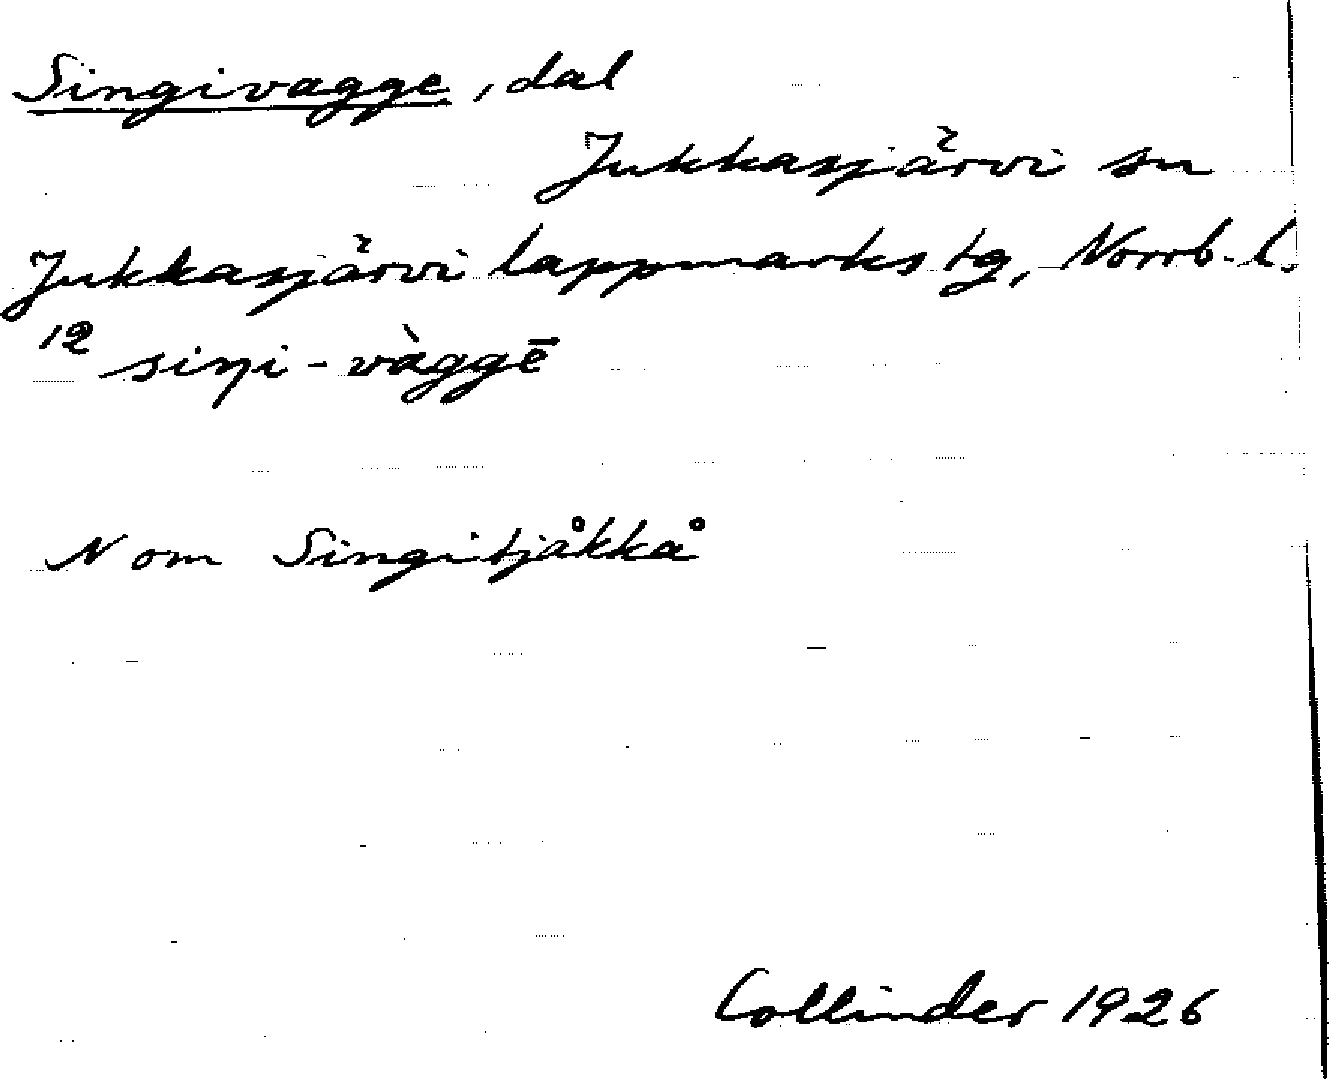 Singivagge, dal
Jukkasjärvi sn
Jukkasjärvi lappmarks tg, Norrb. l.
12 siŋi-vàggē
N om Singitjåkkå
Collinder 1926